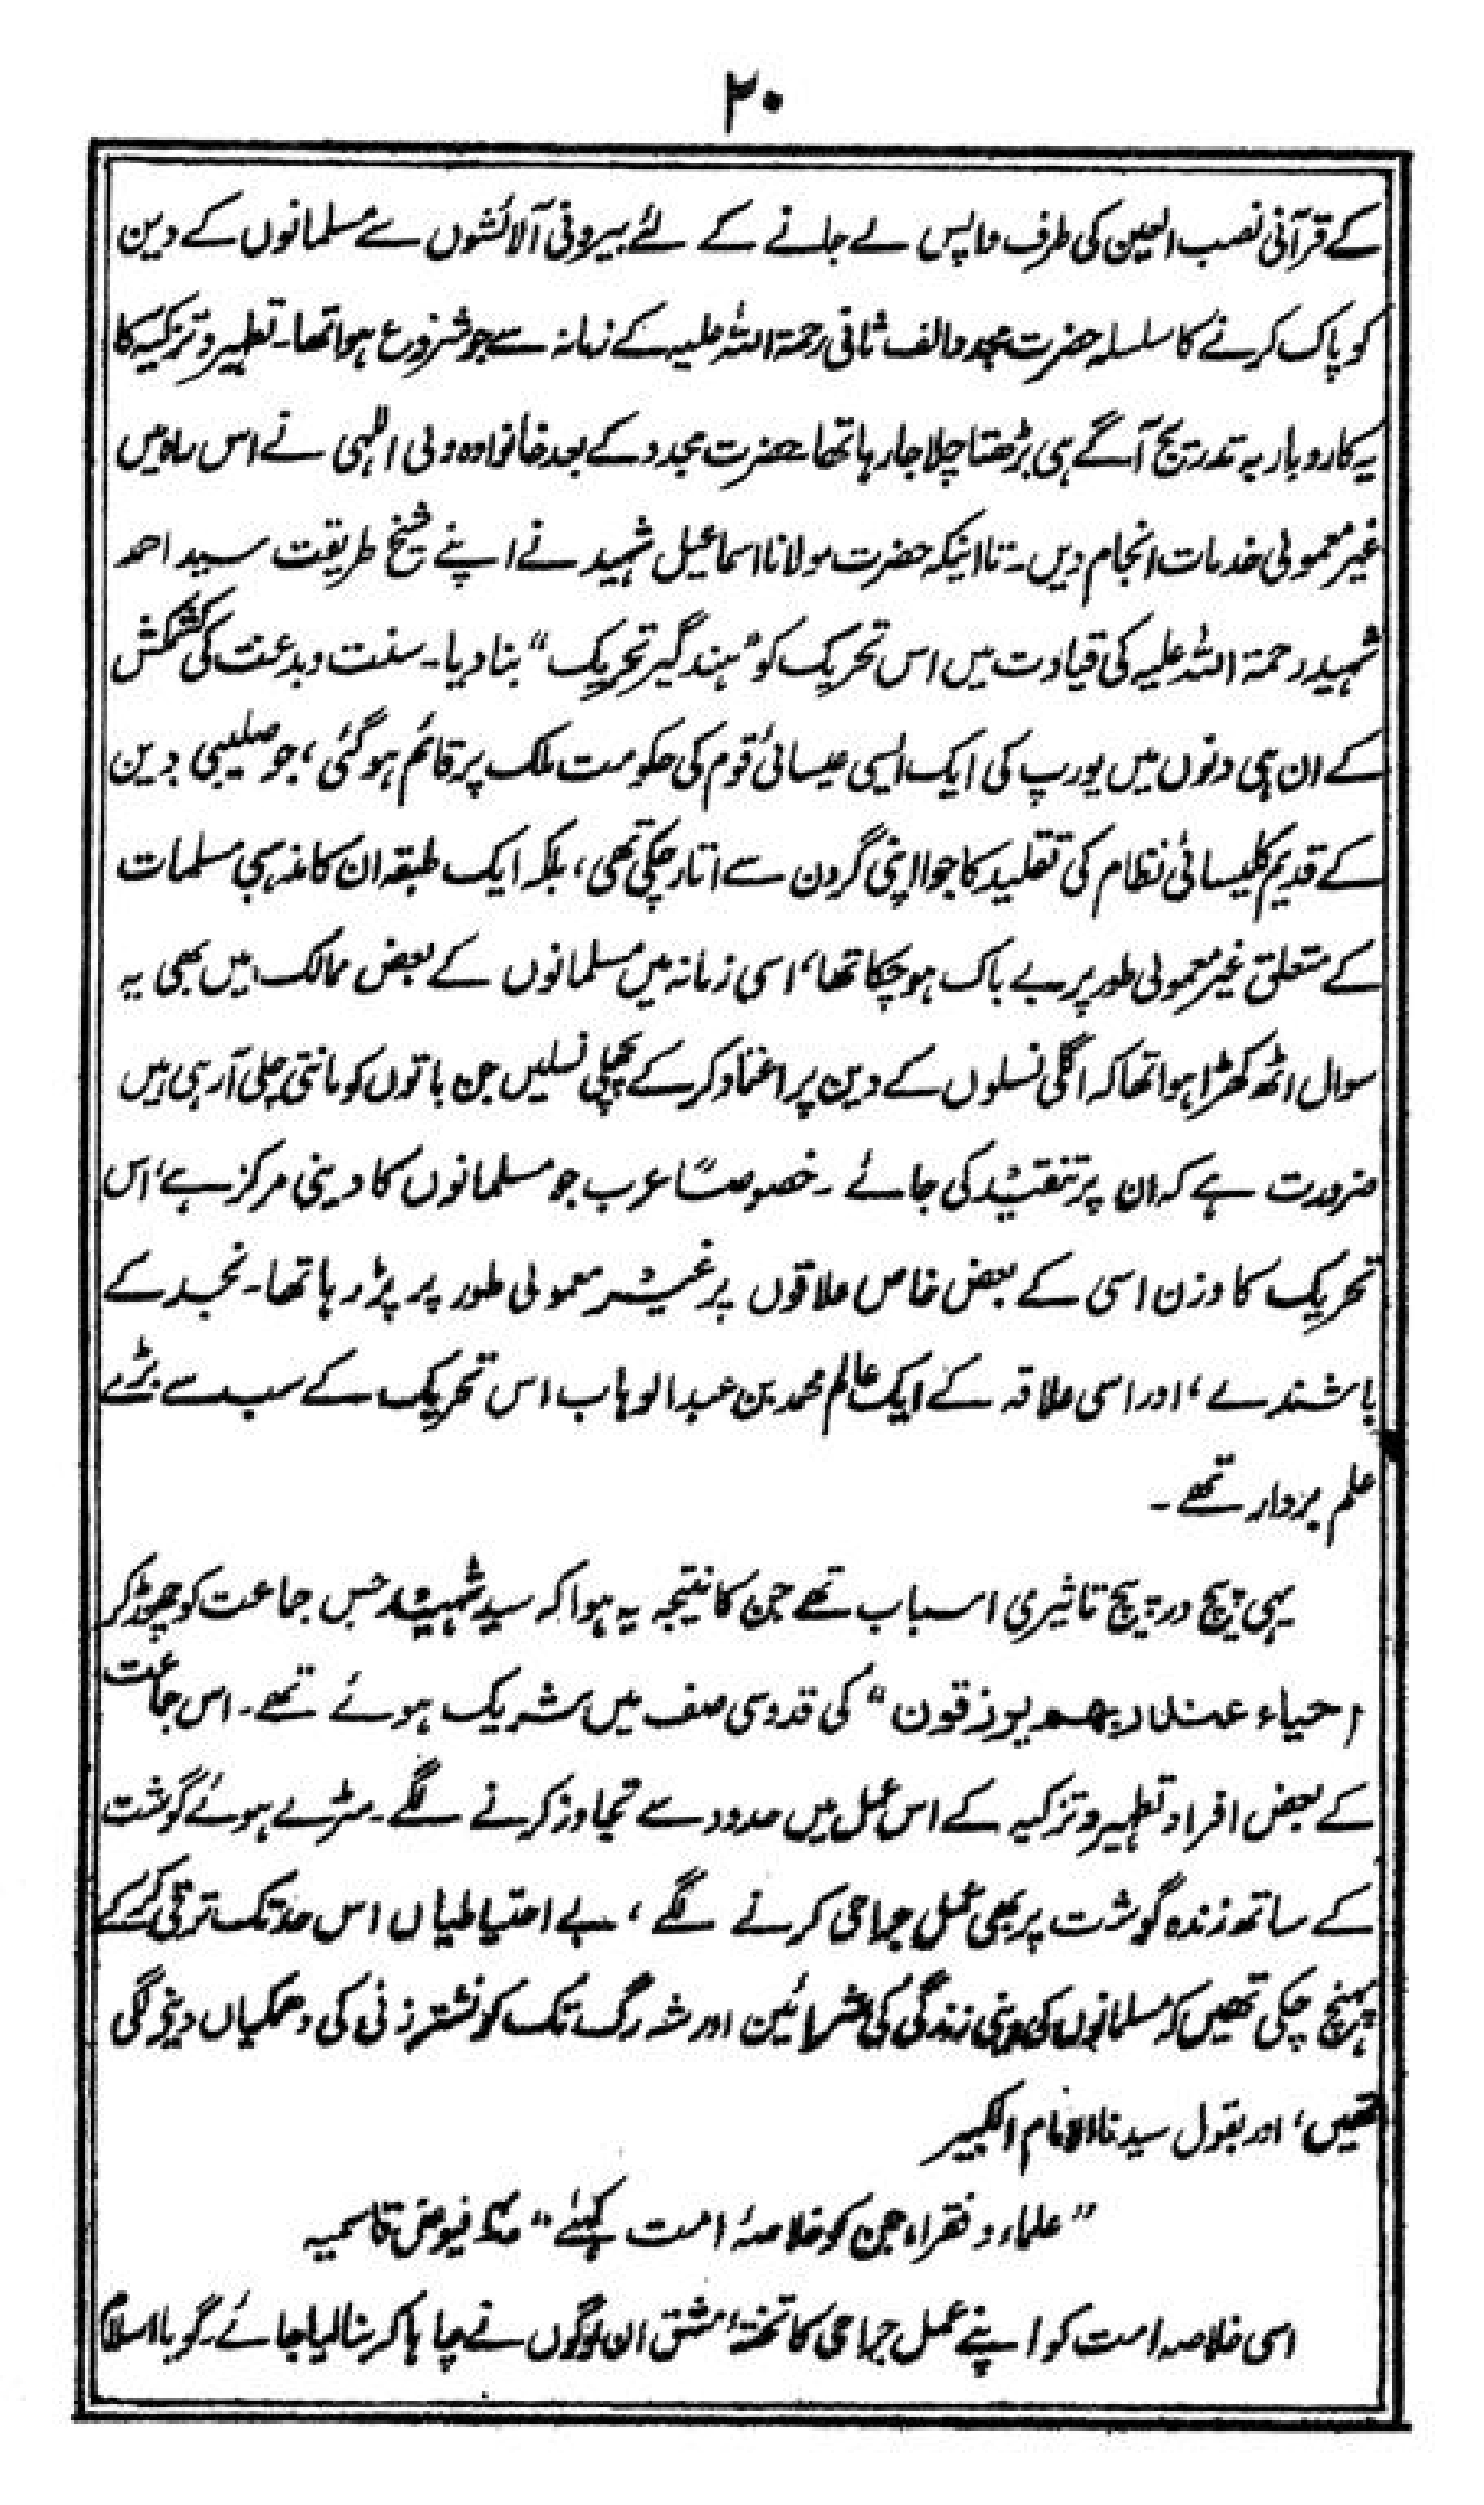 ۲۰
کے قرآنی نصب العین کی طرف واپس لے جانے کے لئے بیرونی آلائشوں سے مسلمانوں کے دین
کو پاک کرنے کا سلسلہ حضرت مجدد الف ثانی رحمۃ اللہ علیہ کے زمانہ سے جو شروع ہوا تھا۔ تطہیر و تزکیہ کا
یہ کاروبار بہ تدریج آگے ہی بڑھتا چلا جا رہا تھا حضرت مجدد کے بعد خانوادہ ولی اللہی نے اس راہ میں
غیر معمولی خدمات انجام دیں۔ تا اینکہ حضرت مولانا اسماعیل شہید نے اپنے شیخ طریقت سید احمد
شہید رحمۃ اللہ علیہ کی قیادت میں اس تحریک کو "ہند گیر تحریک" بنا دیا۔ سنت و بدعت کی کشمکش
کے ان ہی دنوں میں یورپ کی ایک ایسی عیسائی قوم کی حکومت ملک پر قائم ہو گئی، جو صلیبی دین
کے قدیم کلیسائی نظام کی تقلید کا جوا اپنی گردن سے اتار چکی تھی، بلکہ ایک طبقہ ان کا مذہبی مسلمات
کے متعلق غیر معمولی طور پر بے باک ہو چکا تھا، اسی زمانہ میں مسلمانوں کے بعض ممالک میں بھی یہ
سوال اٹھ کھڑا ہوا تھا کہ اگلی نسلوں کے دین پر اعتماد کر کے پچھلی نسلیں جن باتوں کو مانتی چلی آ رہی ہیں
ضرورت ہے کہ ان پر تنقید کی جائے۔ خصوصاً عرب جو مسلمانوں کا دینی مرکز ہے، اس
تحریک کا وزن اسی کے بعض خاص علاقوں پر غیر معمولی طور پر پڑ رہا تھا۔ نجد کے
باشندے، اور اسی علاقہ کے ایک عالم محمد بن عبدالوہاب اس تحریک کے سب سے بڑے
علم بردار تھے۔
یہی پیچ در پیچ تاثیری اسباب تھے جن کا نتیجہ یہ ہوا کہ سید شہید جس جماعت کو چھوڑ کر
احیاء عند ربھم یرزقون" کی قدوسی صف میں شریک ہوئے تھے۔ اس جماعت
کے بعض افراد تطہیر و تزکیہ کے اس عمل میں حدود سے تجاوز کرنے لگے۔ سڑے ہوئے گوشت
کے ساتھ زندہ گوشت پر بھی عمل جراحی کرنے لگے، بے احتیاطیاں اس حد تک ترقی کر کے
پہنچ چکی تھیں کہ مسلمانوں کی دینی زندگی کی شرائین اور شہ رگ تک کو نشتر زنی کی دھمکیاں دینے لگی
تھیں، اور بقول سیدنا الامام الکبیر
"علماء و فقراء جن کو خلاصۂ امت کہئے" فیوض قاسمیہ
اسی خلاصہ امت کو اپنے عمل جراحی کا تختۂ مشق ان لوگوں نے چاہا کہ بنا لیا جائے۔ گویا اسلام